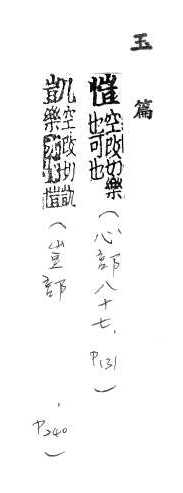 玉篇
愷 空改切樂
也可也
(心部八十七, P131)
凱 空改切凱
樂 愷
(豈部, P240)